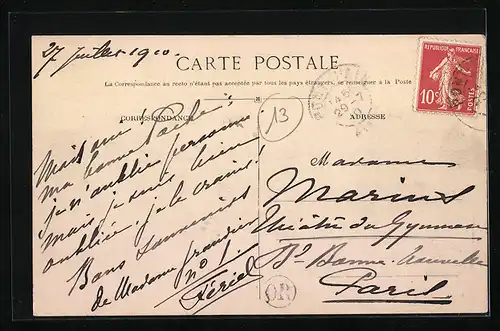 27 Juillet 1910.
CARTE POSTALE
La Correspondance au recto n'étant pas acceptée par tous les pays étrangers, se renseigner à la Poste
CORRESPONDANCE
ADRESSE
13
REPUBLIQUE FRANÇAISE
10c
POSTES
29-7
Mais oui!
ma bonne
je n'oublie personne
mais je suis bien
oubliée, je le crains!
Bons Souvenirs
de Madame
no 1.
Madame
Marius
Théâtre du Gymnase
Bd Bonne-Nouvelle
Paris
OR